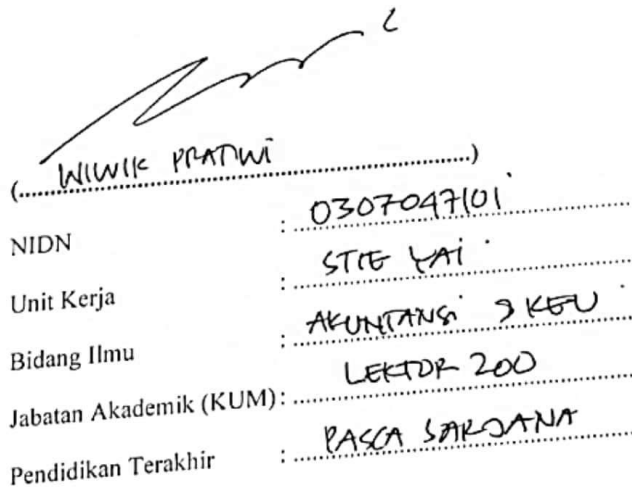 (..... WIWIK PRATIWI .....)
NIDN : 0307047101
Unit Kerja : STIE YAI
Bidang Ilmu : AKUNTANSI & KEU
Jabatan Akademik (KUM): LEKTOR 200
Pendidikan Terakhir : PASCA SARJANA